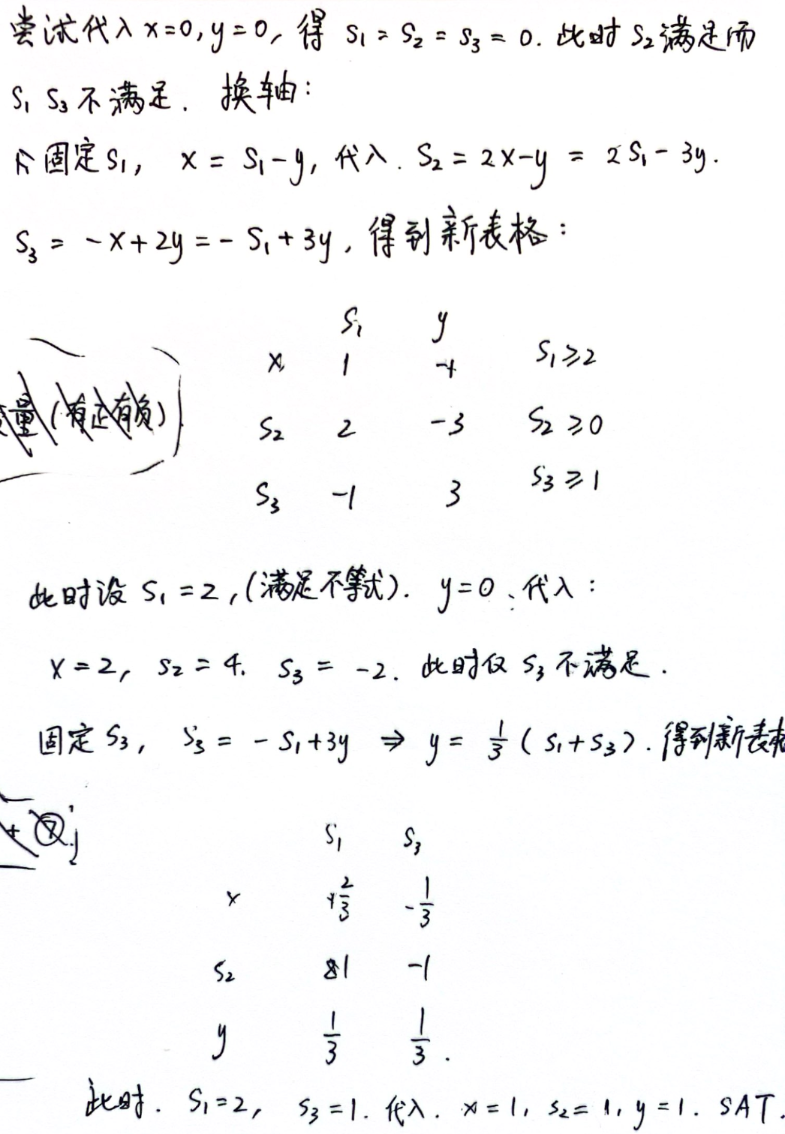 尝试代入 x=0, y=0, 得 S₁ = S₂ = S₃ = 0. 此时 S₂ 满足而
S₁ S₃ 不满足. 换轴:
固定 S₁, x = S₁-y, 代入. S₂ = 2x-y = 2S₁-3y.
S₃ = -x+2y = -S₁+3y, 得到新表格:
S₁ y
x 1 -1 S₁≥2
量(有正有负)
S₂ 2 -3 S₂≥0
S₃ -1 3 S₃≥1
此时设 S₁=2, (满足不等式). y=0, 代入:
x=2, S₂=4. S₃=-2. 此时仅 S₃ 不满足.
固定 S₃, S₃ = -S₁+3y ⇒ y = 1/3 (S₁+S₃). 得到新表格
S₁ S₃
x 2/3 -1/3
S₂ 1 -1
y 1/3 1/3.
此时. S₁=2, S₃=1. 代入. x=1, S₂=1, y=1. SAT.